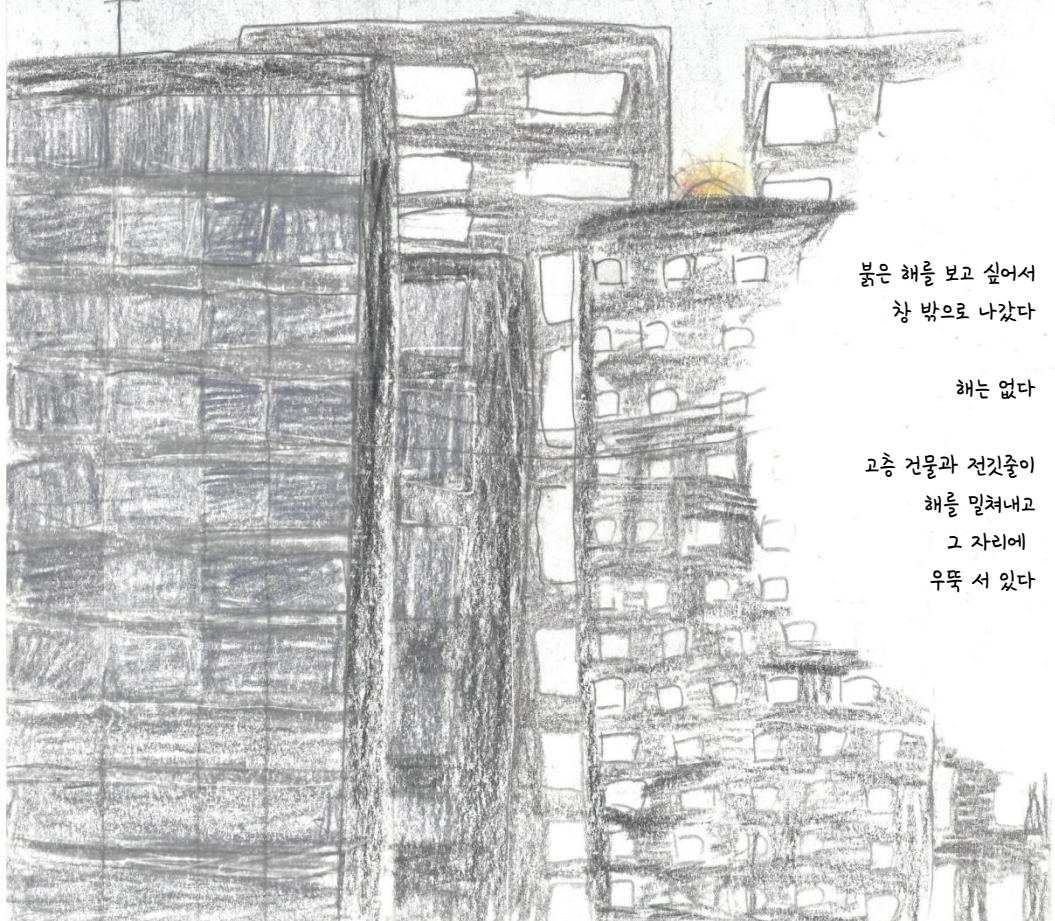 붉은 해를 보고 싶어서
창 밖으로 나갔다
해는 없다
고층 건물과 전깃줄이
해를 밀쳐내고
그 자리에
우뚝 서 있다